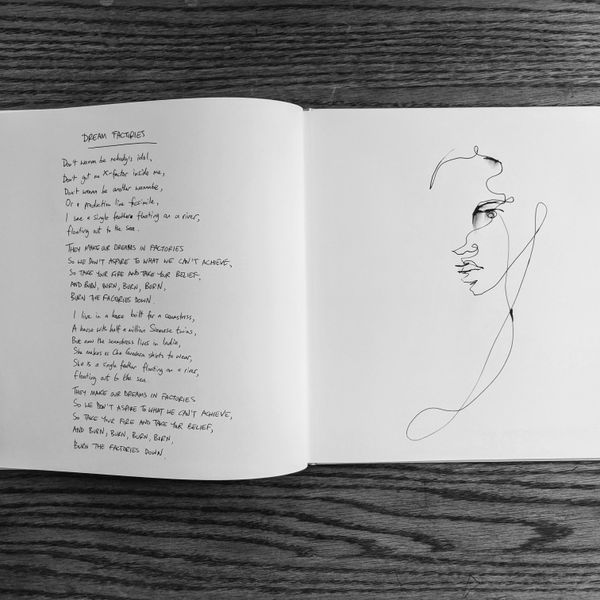 DREAM FACTORIES
Don't wanna be nobody's idol,
Don't got no X-factor inside me,
Don't wanna be another wannabe,
Or a production line facsimile,
I see a single feather floating on a river,
floating out to the sea.
THEY MAKE OUR DREAMS IN FACTORIES
SO WE DON'T ASPIRE TO WHAT WE CAN'T ACHIEVE,
SO TAKE YOUR FIRE AND TAKE YOUR BELIEF,
AND BURN, BURN, BURN, BURN,
BURN THE FACTORIES DOWN.
I live in a house built for a seamstress,
A house with half a million Siamese twins,
But now the seamstress lives in India,
She makes us Che Guevara shirts to wear,
She is a single feather floating on a river,
floating out to the sea
THEY MAKE OUR DREAMS IN FACTORIES
SO WE DON'T ASPIRE TO WHAT WE CAN'T ACHIEVE,
SO TAKE YOUR FIRE AND TAKE YOUR BELIEF,
AND BURN, BURN, BURN, BURN,
BURN THE FACTORIES DOWN.